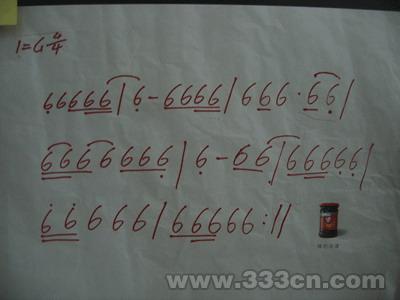 1=G 4/4
66666|6-6666|666·66|
66666666|6-66|66666|
66666|66666:||
www.333cn.com